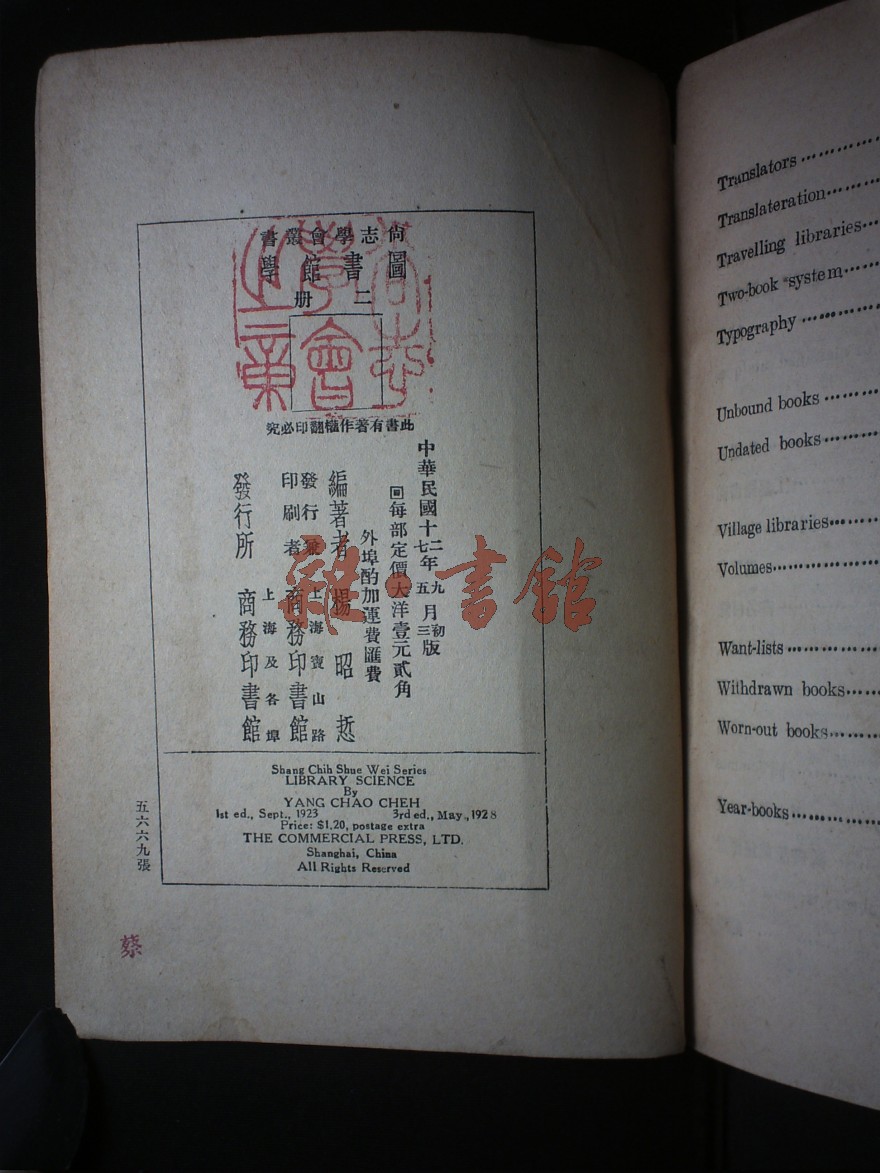 尙志學會叢書
圖書館學
二册
此書有著作權翻印必究
中華民國十二年九月初版
十七年五月三版
回每部定價大洋壹元貳角
外埠酌加運費匯費
編著者 楊昭悊
發行兼印刷者 上海寶山路 商務印書館
發行所 上海及各埠 商務印書館
Shang Chih Shue Wei Series
LIBRARY SCIENCE
By
YANG CHAO CHEH
1st ed., Sept., 1923 3rd ed., May, 1928
Price: $1.20, postage extra
THE COMMERCIAL PRESS, LTD.
Shanghai, China
All Rights Reserved
五六六九張
蔡
Translators
Translateration
Travelling libraries
Two-book system
Typography
Unbound books
Undated books
Village libraries
Volumes
Want-lists
Withdrawn books
Worn-out books
Year-books